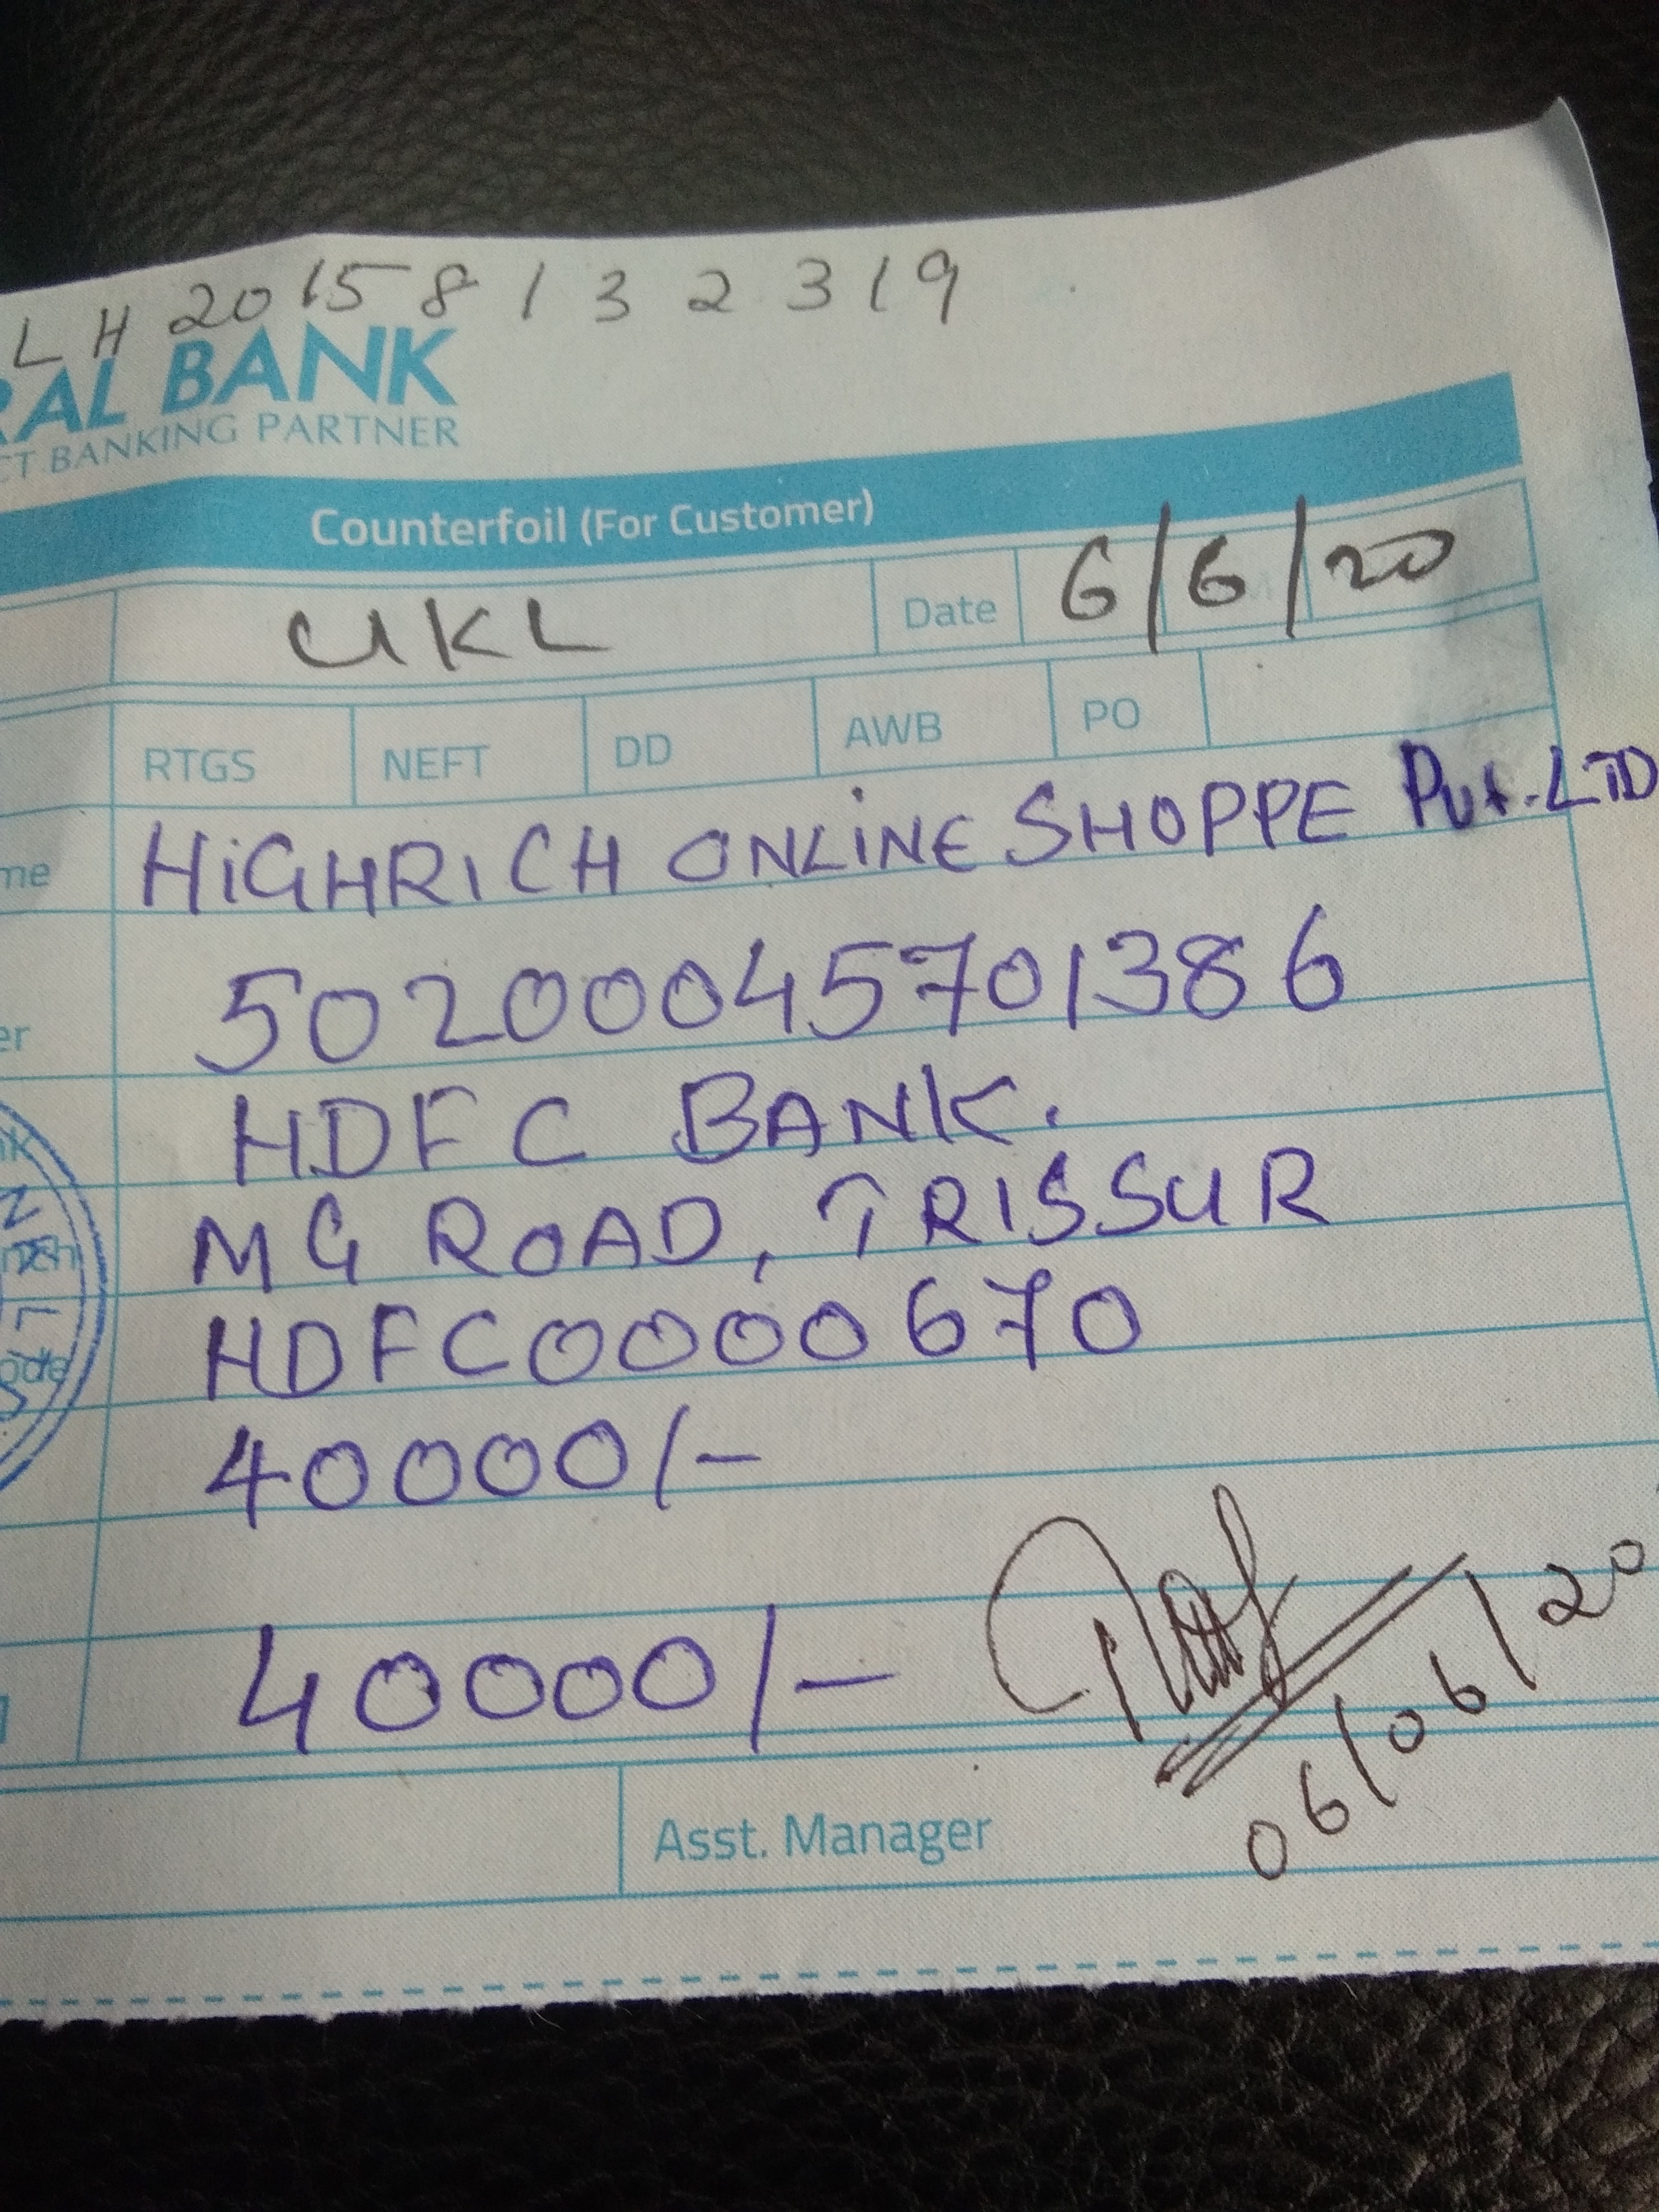 LH20158132319
RAL BANK
CT BANKING PARTNER
Counterfoil (For Customer)
UKL Date 6/6/20
RTGS NEFT DD AWB PO
me HiGHRICH ONLiNE SHOPPE Pvt. LTD
er 50200045701386
HDFC BANK.
MG ROAD, TRISSUR
HDFC0000670
40000/-
40000/-
06/06/20
Asst. Manager